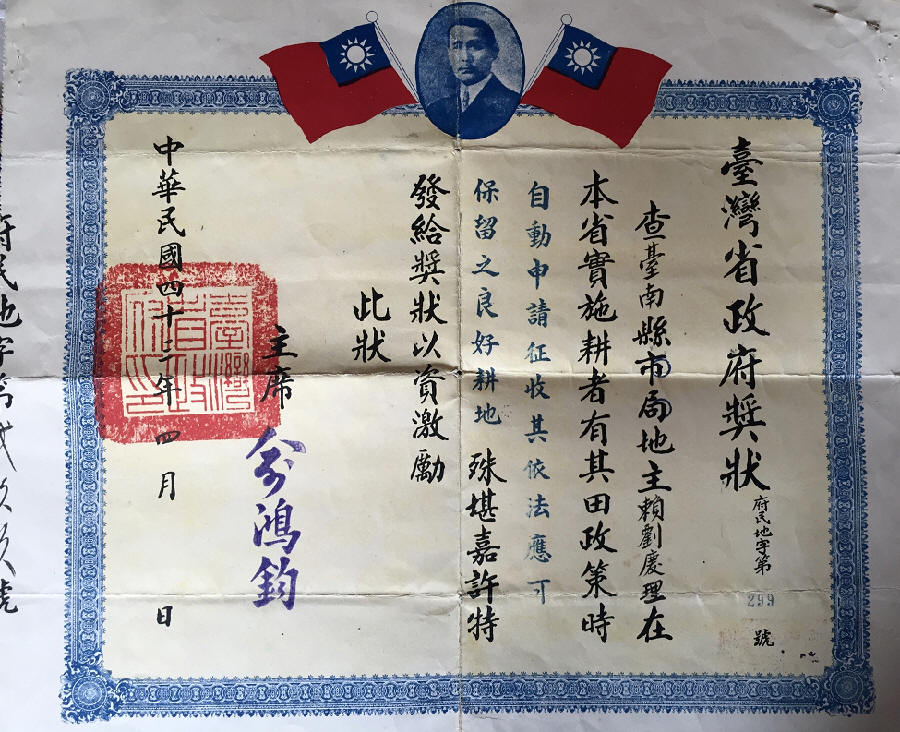 臺灣省政府獎狀
府民地字第299號
查臺南縣市局地主賴劉慶理在
本省實施耕者有其田政策時
自動申請征收其依法應可
保留之良好耕地 殊堪嘉許特
發給獎狀以資激勵
此狀
主席 俞鴻鈞
中華民國四十三年四月 日
臺灣省政府印
府民地字第貳久久號